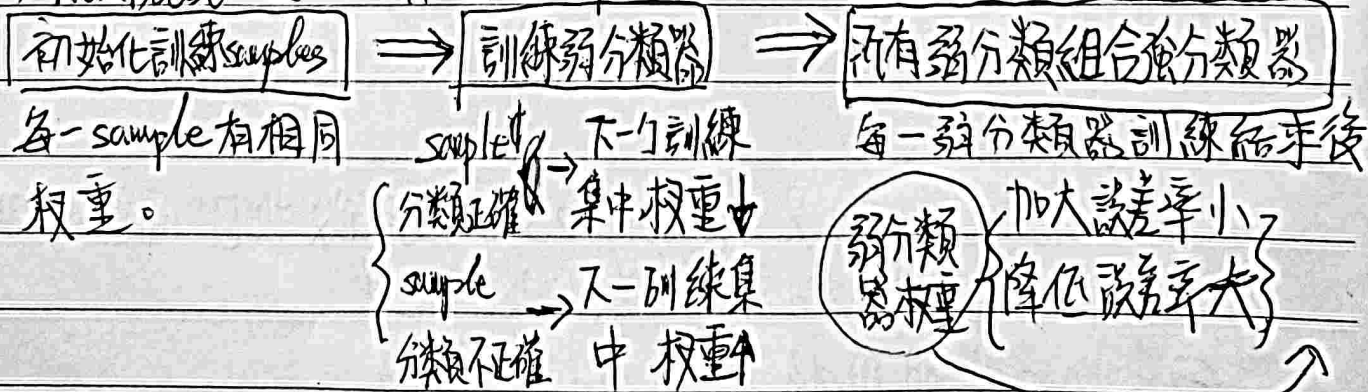 初始化訓練samples ⟹ 訓練弱分類器 ⟹ 所有弱分類組合強分類器
每一sample有相同
权重。
sample
分類正確 → 下一个訓練
集中,权重↓
sample
分類不正確 → 下一訓練集
中 权重↑
每一弱分類器訓練結束後
弱分類
器权重
加大誤差率小
降低誤差率大